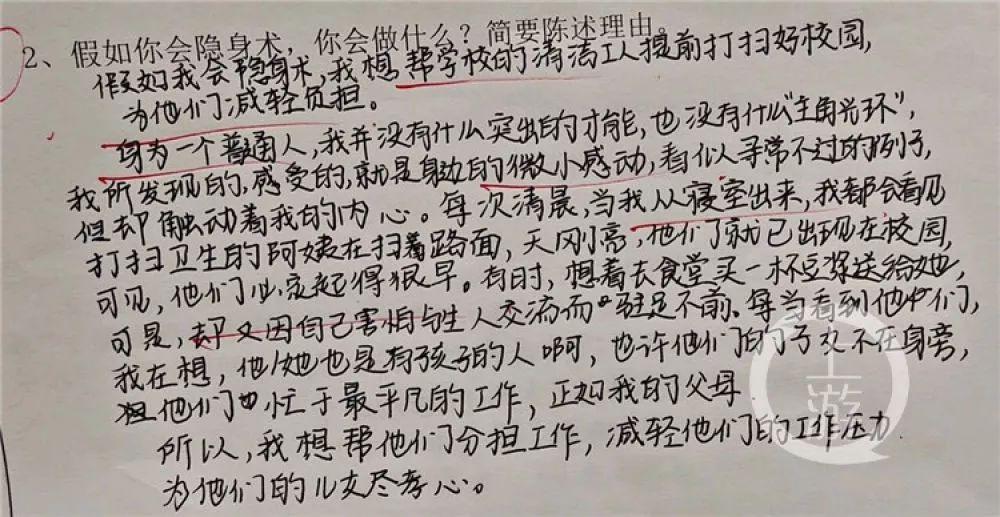 2、假如你会隐身术，你会做什么？简要陈述理由。
假如我会隐身术，我想帮学校的清洁工人提前打扫好校园，
为他们减轻负担。
身为一个普通人，我并没有什么突出的才能，也没有什么“主角光环”，
我所发现的，感受的，就是身边的微小感动，看似寻常不过的例子，
但却触动着我的内心。每次清晨，当我从寝室出来，我都会看见
打扫卫生的阿姨在扫着路面，天刚亮，他们就已出现在校园，
可见，他们必定起得很早。有时，想着去食堂买一杯豆浆送给她，
可是，却又因自己害怕与生人交流而驻足不前。每当看到他们，
我在想，他/她也是有孩子的人啊，也许他们的子女不在身旁，
但他们也忙于最平凡的工作，正如我的父母
所以，我想帮他们分担工作，减轻他们的工作压力
为他们的儿女尽孝心。
上游